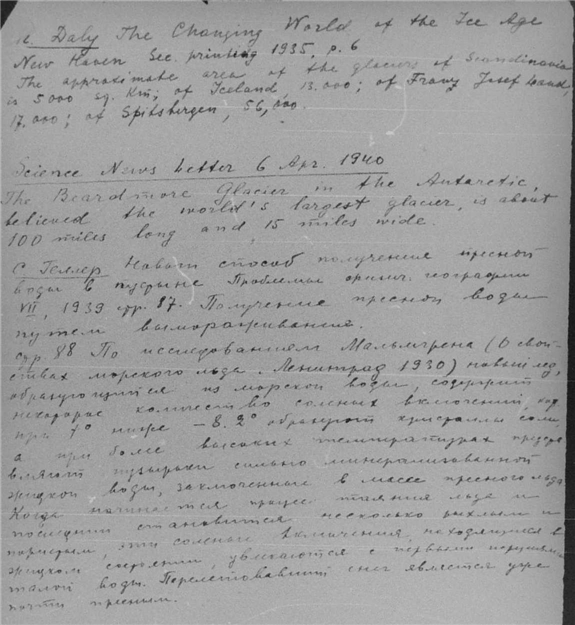 R. Daly The Changing World of the Ice Age
New Haven Sec. printing 1935, p. 6
The approximate area of the glaciers of Scandinavia
is 5000 sq. Km; of Iceland, 13.000; of Franz Josef Land,
17.000; of Spitsbergen, 56,000.
Science News Letter 6 Apr. 1940
The Beardmore Glacier in the Antarctic,
believed the world's largest glacier, is about
100 miles long and 15 miles wide.
С. Геллер Новый способ получения пресной
воды в пустыне Проблемы физич. географии
VII, 1939 стр. 87. Получение пресной воды
путем вымораживания.
стр. 88 По исследованиям Мальмгрена (О свой-
ствах морского льда. Ленинград 1930) новый лед,
образующийся из морской воды, содержит
некоторое количество соленых включений,
при t° ниже – 8.2° образуют кристаллы соли,
а при более высоких температурах предста
вляют пузырьки сильно минерализованной
жидкой воды, заключенные в массе пресного льда.
Когда начинается процесс таяния льда и
последний становится несколько рыхлым и
пористым, эти соленые включения, находящиеся в
жидком состоянии, увлекаются с первыми порциями
талой воды. Перелетовавший снег является уже
почти пресным.